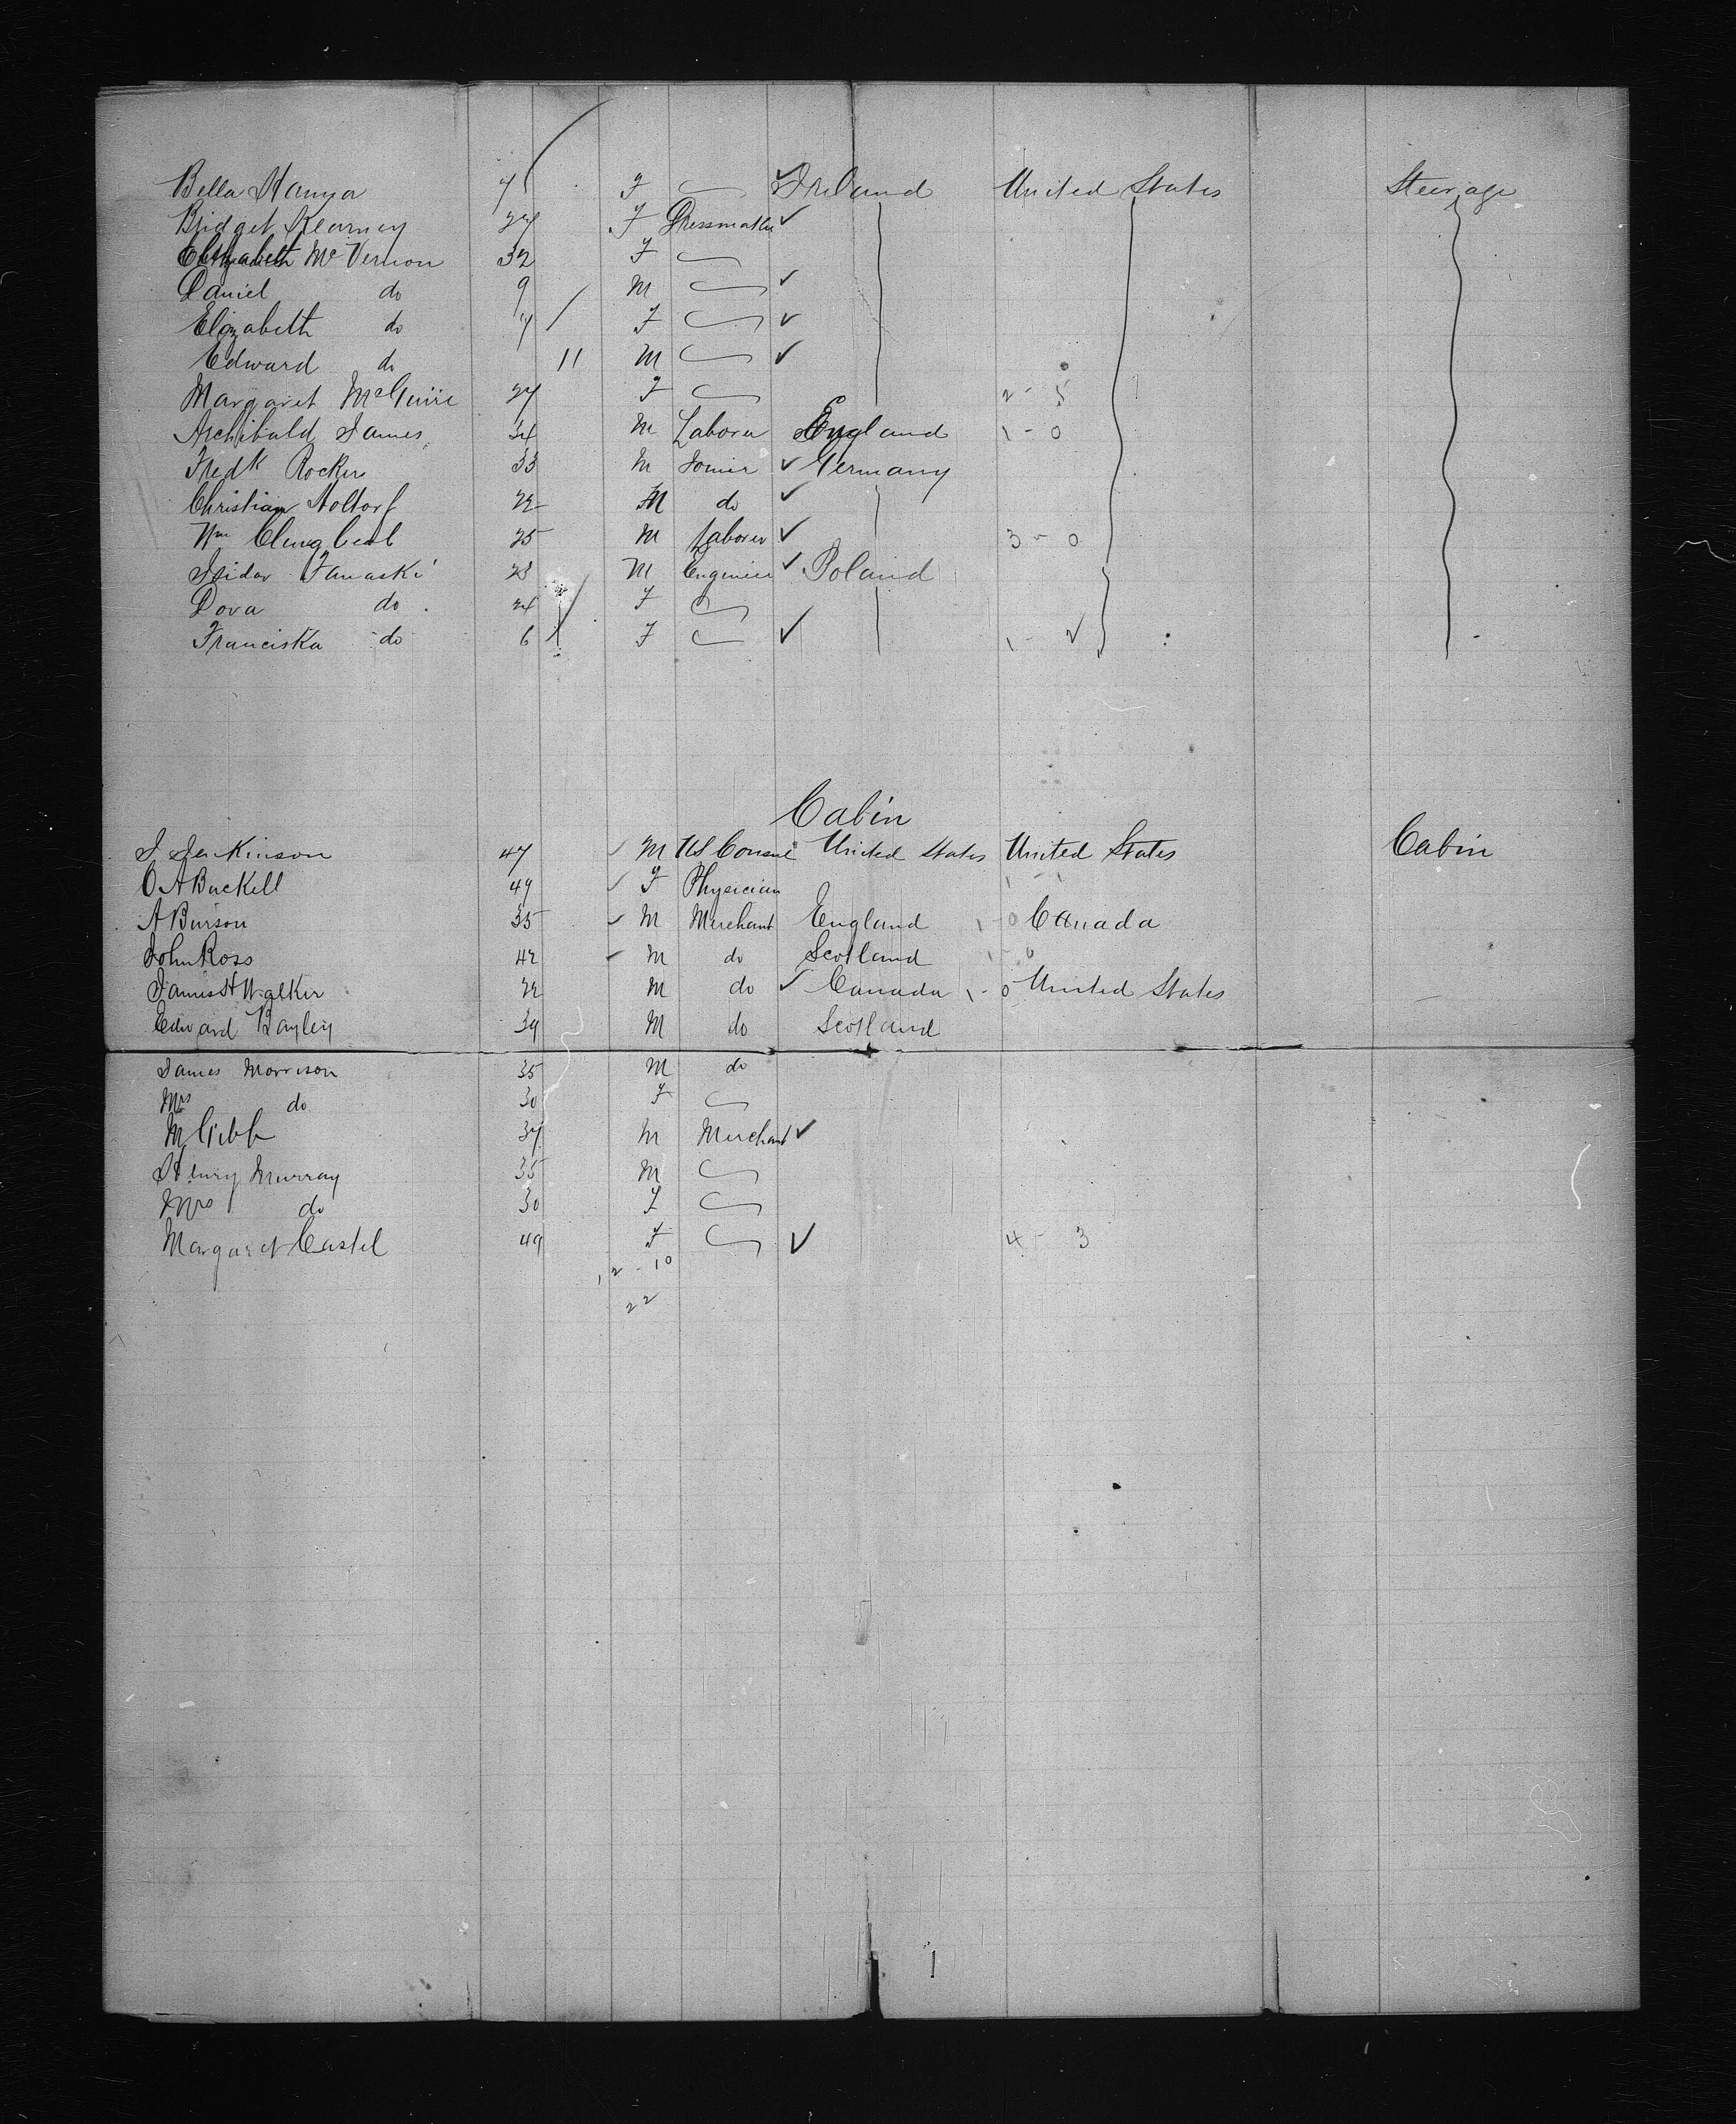 Bella Hanya 7 F Ireland United States Steerage
Bridget Kearney 27 F Dressmaker
Elizabeth McVernon 32 F
Daniel do 9 M
Elizabeth do 7 F
Edward do 11 M
Margaret McGuire 27 F 2 - 5
Archibald James 34 M Laborer England 1 - 0
Fredk Rocker 33 M Joiner Germany
Christian Holtorf 22 M do
Wm 25 M Laborer 3 - 0
Isidor Fanaski 23 M Engineer Poland
Dova do 24 F
Franciska do 6 F 1 - 2
Cabin
J Jenkinson 47 M US Consul United States United States Cabin
O A Buckell 49 F Physician 1 - 1
A Burson 35 M Merchant England 1 - 0 Canada
John Ross 42 M do Scotland 1 - 0
James H Walker 22 M do Canada 1 - 0 United States
Edward Bayley 39 M do Scotland
James Morrison 35 M do
Mrs do 30 F
M Gibb 37 M Merchant
Henry Murray 35 M
Mrs do 30 F
Margaret Castel 49 F 4 - 3
12 - 10
22